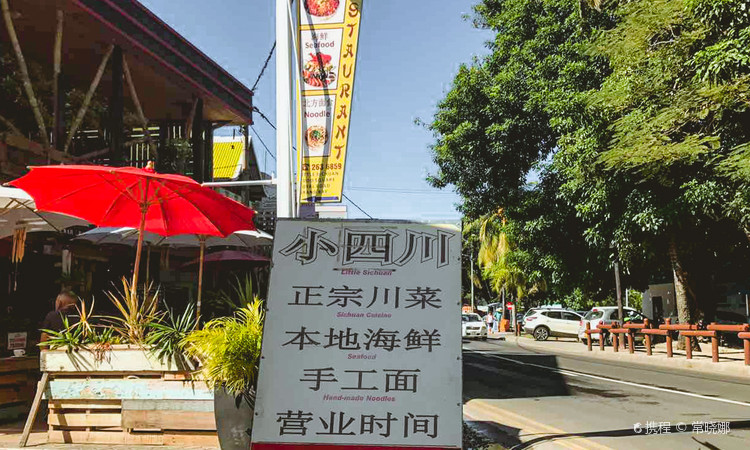 STAURANT
海鲜
Seafood
Noodle
263 6859
小四川
Little Sichuan
正宗川菜
Sichuan Cuisine
本地海鲜
Seafood
手工面
Hand-made Noodles
营业时间
携程 © 常晓娜